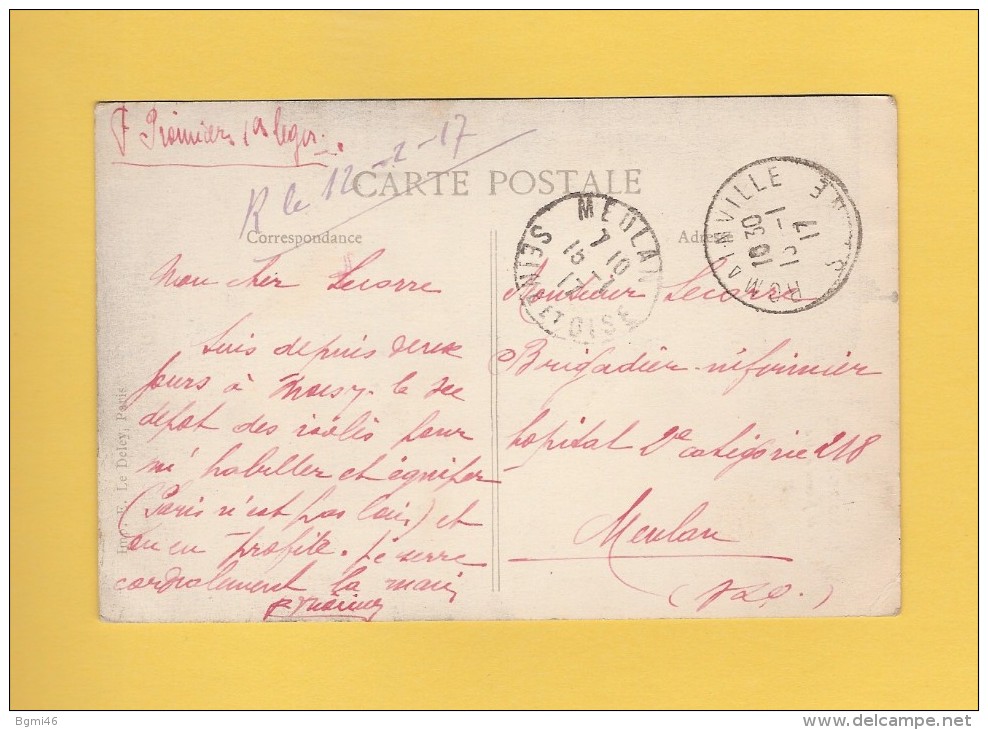 R le 12-1-17
CARTE POSTALE
Correspondance
Adresse
MEULAN
7 10
15-1
17
SEINE ET OISE
ROMAINVILLE
10 30
15-1
17
SEINE
Mon cher Lecorre
Suis depuis deux
jours à Noisy-le sec
depot des isolés pour
m'habiller et équiper
(Paris n'est pas loin) et
on en profite. Je serre
cordialement la main
Monsieur Lecorre
Brigadier infirmier
hopital 2e catégorie 218
Meulan
(S&O.)
Imp. E. Le Deley, Paris
Bgmi46
www.delcampe.net